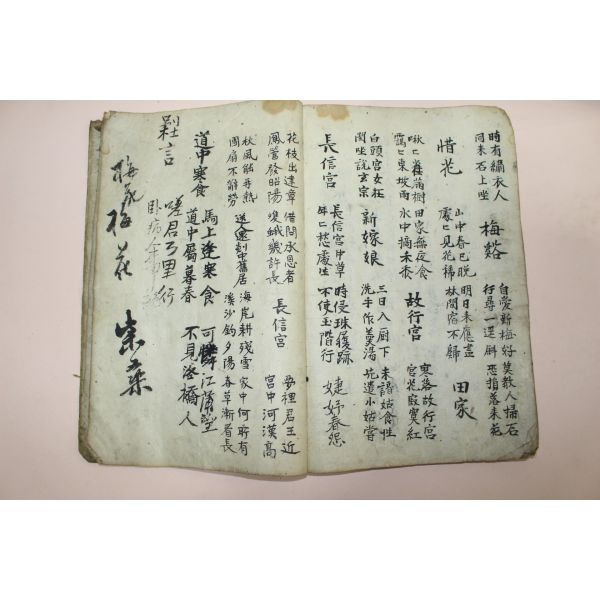 時有繡衣人
同來石上坐
梅谿
自愛新梅好
行尋一逕斜
莫敎人掃石
恐損落來花
惜花
山中春已脫
處〻見花稀
明日來應盡
林間宿不歸
田家
啾〻雀滿樹
靄〻東坡雨
田家無夜食
水中摘禾黍
故行宮
寥落故行宮
宮花寂寞紅
白頭宮女在
閑坐說玄宗
新嫁娘
三日入厨下
洗手作羹湯
未諳姑食性
先遣小姑嘗
長信宮
長信宮中草
年〻愁處生
時侵珠履跡
不使玉階行
婕妤春怨
花枝出建章
鳳管發昭陽
借問承恩者
雙蛾幾許長
長信宮
夢裡君王近
宮中河漢高
秋風能再熱
團扇不辭勞
送人還剡中舊居
海岸耕殘雪
溪沙釣夕陽
家中何所有
春草漸看長
道中寒食
馬上逢寒食
道中屬暮春
可憐江浦望
不見洛橋人
言
嗟君万里行
臥病
梅花梅花